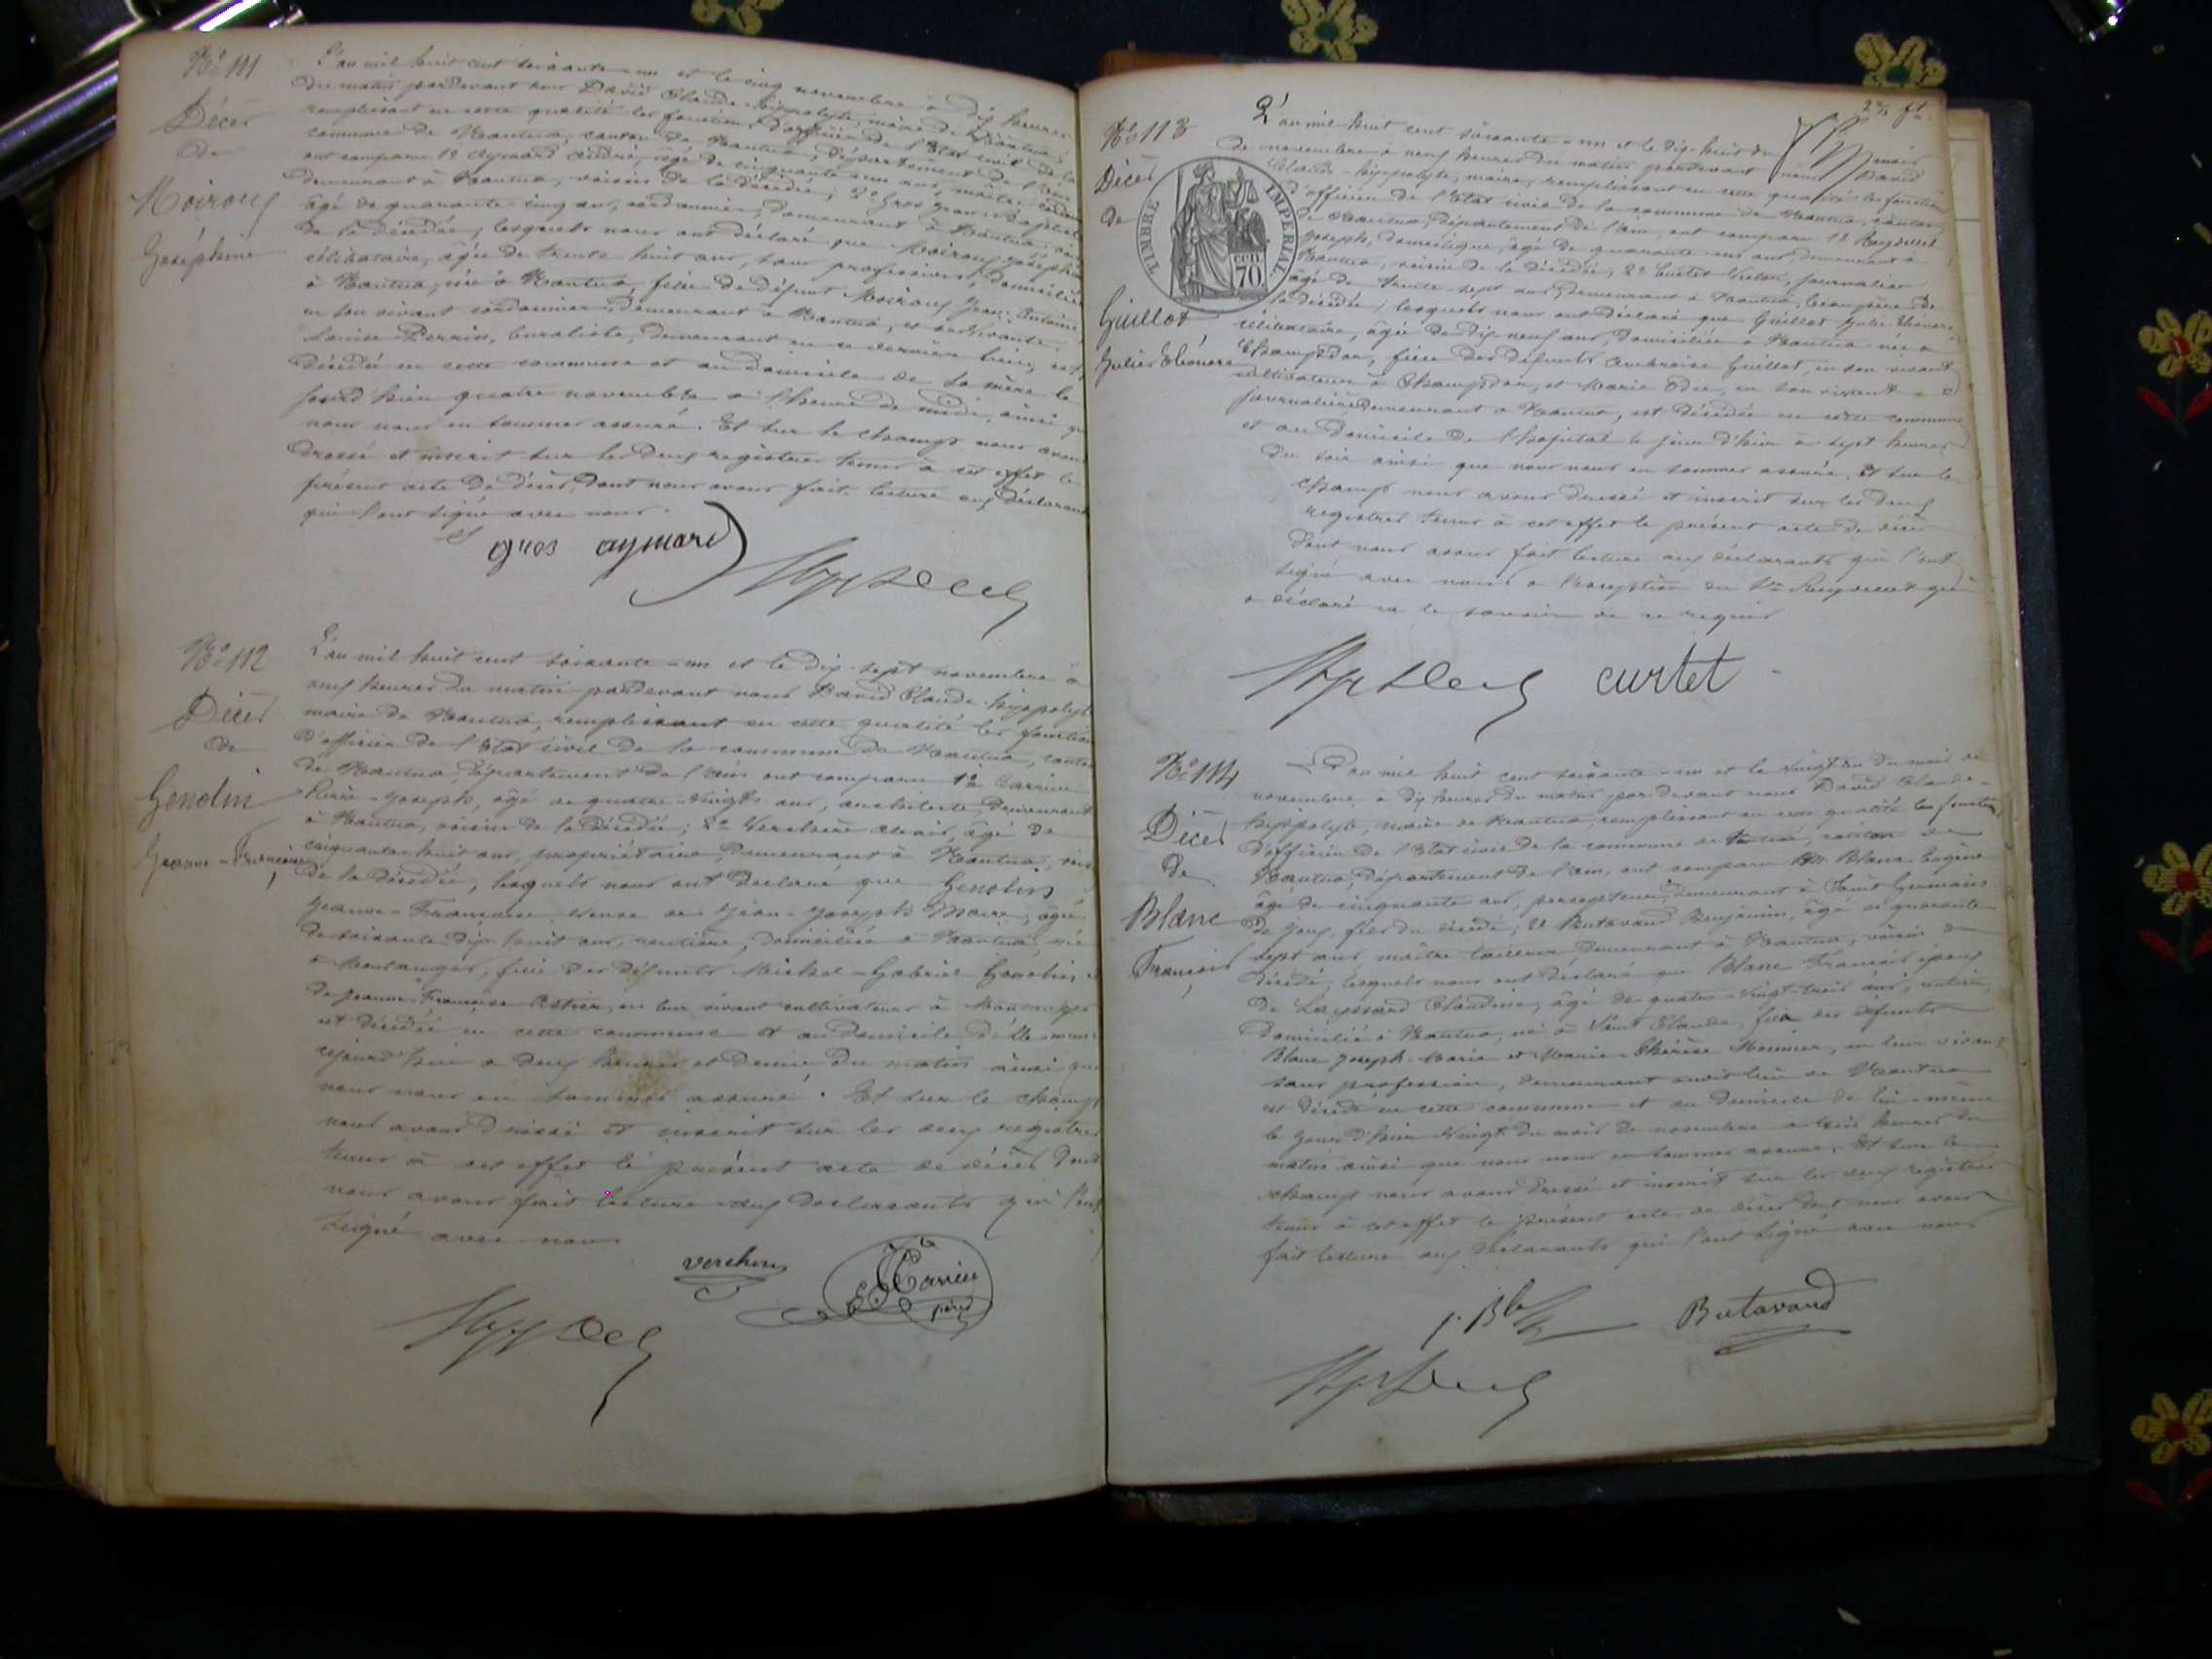 No 111
Décès
de
Moiroux
Joséphine
L'an mil huit cent soixante-un et le cinq novembre à dix heures
du matin pardevant nous David Claude-hippolyte, maire de Nantua,
remplissant en cette qualité les fonctions d'officier de l'Etat civil de la
commune de Nantua, canton de Nantua, département de l'Ain
ont comparu 1o Aymard André, âgé de cinquante-un ans, maître
demeurant à Nantua, voisin de la décédée; 2o Gros
âgé de quarante-cinq ans, cordonnier, demeurant à Nantua
de la décédée; lesquels nous ont déclaré que Moiroux Joséphine
célibataire, âgée de trente huit ans, sans profession, domiciliée
à Nantua, née à Nantua fille de défunt Moiroux Jean-Antoine
en son vivant cordonnier, demeurant à Nantua, et de vivante
Louise Perrin, buraliste, demeurant en ce dernier lieu, est
décédée en cette commune et au domicile de sa mère le
jourd'hier quatre novembre à l'heure de midi, ainsi que
nous nous en sommes assuré. Et sur le champ nous avons
dressé et inscrit sur les deux registres tenus à cet effet le
présent acte de décès, dont nous avons fait lecture aux déclarants
qui l'ont signé avec nous.
gros aymard
No 112
Décès
de
Genolin
Jeanne-Françoise
L'an mil huit cent soixante-un et le dix-sept novembre à
neuf heures du matin pardevant nous David Claude-hippolyte
maire de Nantua, remplissant en cette qualité les fonctions
d'officier de l'Etat civil de la commune de Nantua, canton
de Nantua, département de l'Ain ont comparu 1o Carrier
Pierre-Joseph, âgé de quatre-vingts ans, architecte, demeurant
à Nantua, voisin de la décédée; 2o Verchère Alexis, âgé de
cinquante-huit ans, propriétaire, demeurant à Nantua, voisin
de la décédée, lesquels nous ont déclaré que Genolin
Jeanne-Françoise veuve de Jean-Joseph Maire, âgée
de soixante-dix-huit ans, rentière, domiciliée à Nantua, née
à Montanges, fille des défunts Michel-Gabriel Genolin et
de Jeanne-Françoise en leur vivant cultivateurs à Montanges
est décédée en cette commune et au domicile d'elle-même
cejourd'hui à deux heures et demie du matin ainsi que
nous nous en sommes assuré. Et sur le champ
nous avons dressé et inscrit sur les deux registres
tenus à cet effet le présent acte de décès dont
nous avons fait lecture aux déclarants qui l'ont
signé avec nous
verchère
Carrier
père
No 113
Décès
de
Guillot
Julie Eléonore
TIMBRE IMPERIAL
CEN. 70
L'an mil huit cent soixante-un et le dix-huit du mois
de novembre à neuf heures du matin pardevant nous David
Claude-hippolyte, maire, remplissant en cette qualité les fonctions
d'officier de l'Etat civil de la commune de Nantua, canton
de Nantua, département de l'Ain, ont comparu 1o Reydellet
Joseph, domestique, âgé de quarante-un ans, demeurant à
Nantua, voisin de la décédée, 2o Curtet journalier
âgé de trente-sept ans, demeurant à Nantua, beau-père de
la décédée; lesquels nous ont déclaré que Guillot Julie-Eléonore
célibataire, âgée de dix-neuf ans, domiciliée à Nantua née à
Champdor, fille des défunts Ambroise Guillot, en son vivant
cultivateur à Champdor, et Marie en son vivant
journalière, demeurant à Nantua, est décédée en cette commune
et au domicile de l'hôpital le jour d'hier à sept heures
du soir ainsi que nous nous en sommes assuré. Et sur le
champ nous avons dressé et inscrit sur les deux
registres tenus à cet effet le présent acte de décès
dont nous avons fait lecture aux déclarants qui l'ont
signé avec nous à l'exception du Sr Reydellet qui
a déclaré ne le savoir de ce requis
curtet
No 114
Décès
de
Blanc
François
L'an mil huit cent soixante-un et le vingt-un du mois de
novembre à dix heures du matin pardevant nous David Claude-
hippolyte, maire de Nantua, remplissant en cette qualité les fonctions
d'officier de l'Etat civil de la commune de Nantua, canton de
Nantua, département de l'Ain, ont comparu 1o Blanc Eugène
âgé de cinquante ans, percepteur, demeurant à Saint Germain
de Joux, fils du décédé; 2o Butavand Benjamin, âgé de quarante
sept ans, maître tailleur, demeurant à Nantua, voisin du
décédé, lesquels nous ont déclaré que Blanc François époux
de Claudine, âgé de quatre-vingt-trois ans, rentier,
domicilié à Nantua, né à Saint Claude, fils des défunts
Blanc Joseph-Marie et Marie-Thérèse en leur vivant
sans profession, demeurant audit lieu de Nantua
est décédé en cette commune et au domicile de lui-même
le jour d'hier vingt du mois de novembre à trois heures du
matin ainsi que nous nous en sommes assuré. Et sur le
champ nous avons dressé et inscrit sur les deux registres
tenus à cet effet le présent acte de décès dont nous avons
fait lecture aux déclarants qui l'ont signé avec nous
Butavand